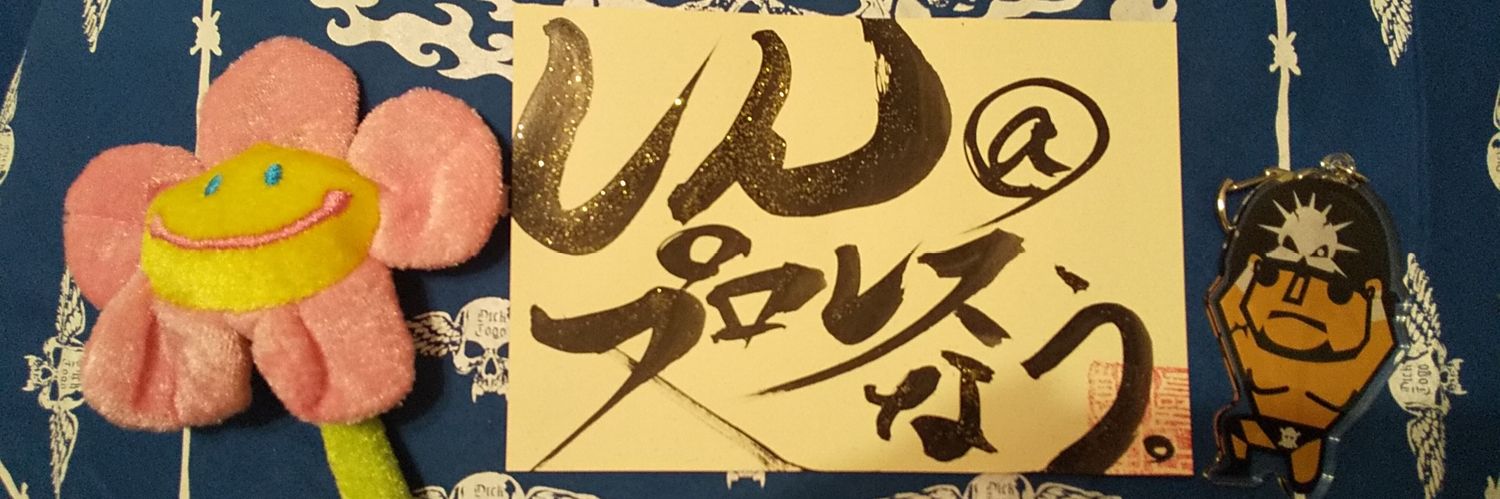 しん@
プロレス
なう。
Dick
Togo
Dick
Togo
Dick
Togo
Dick
Dick